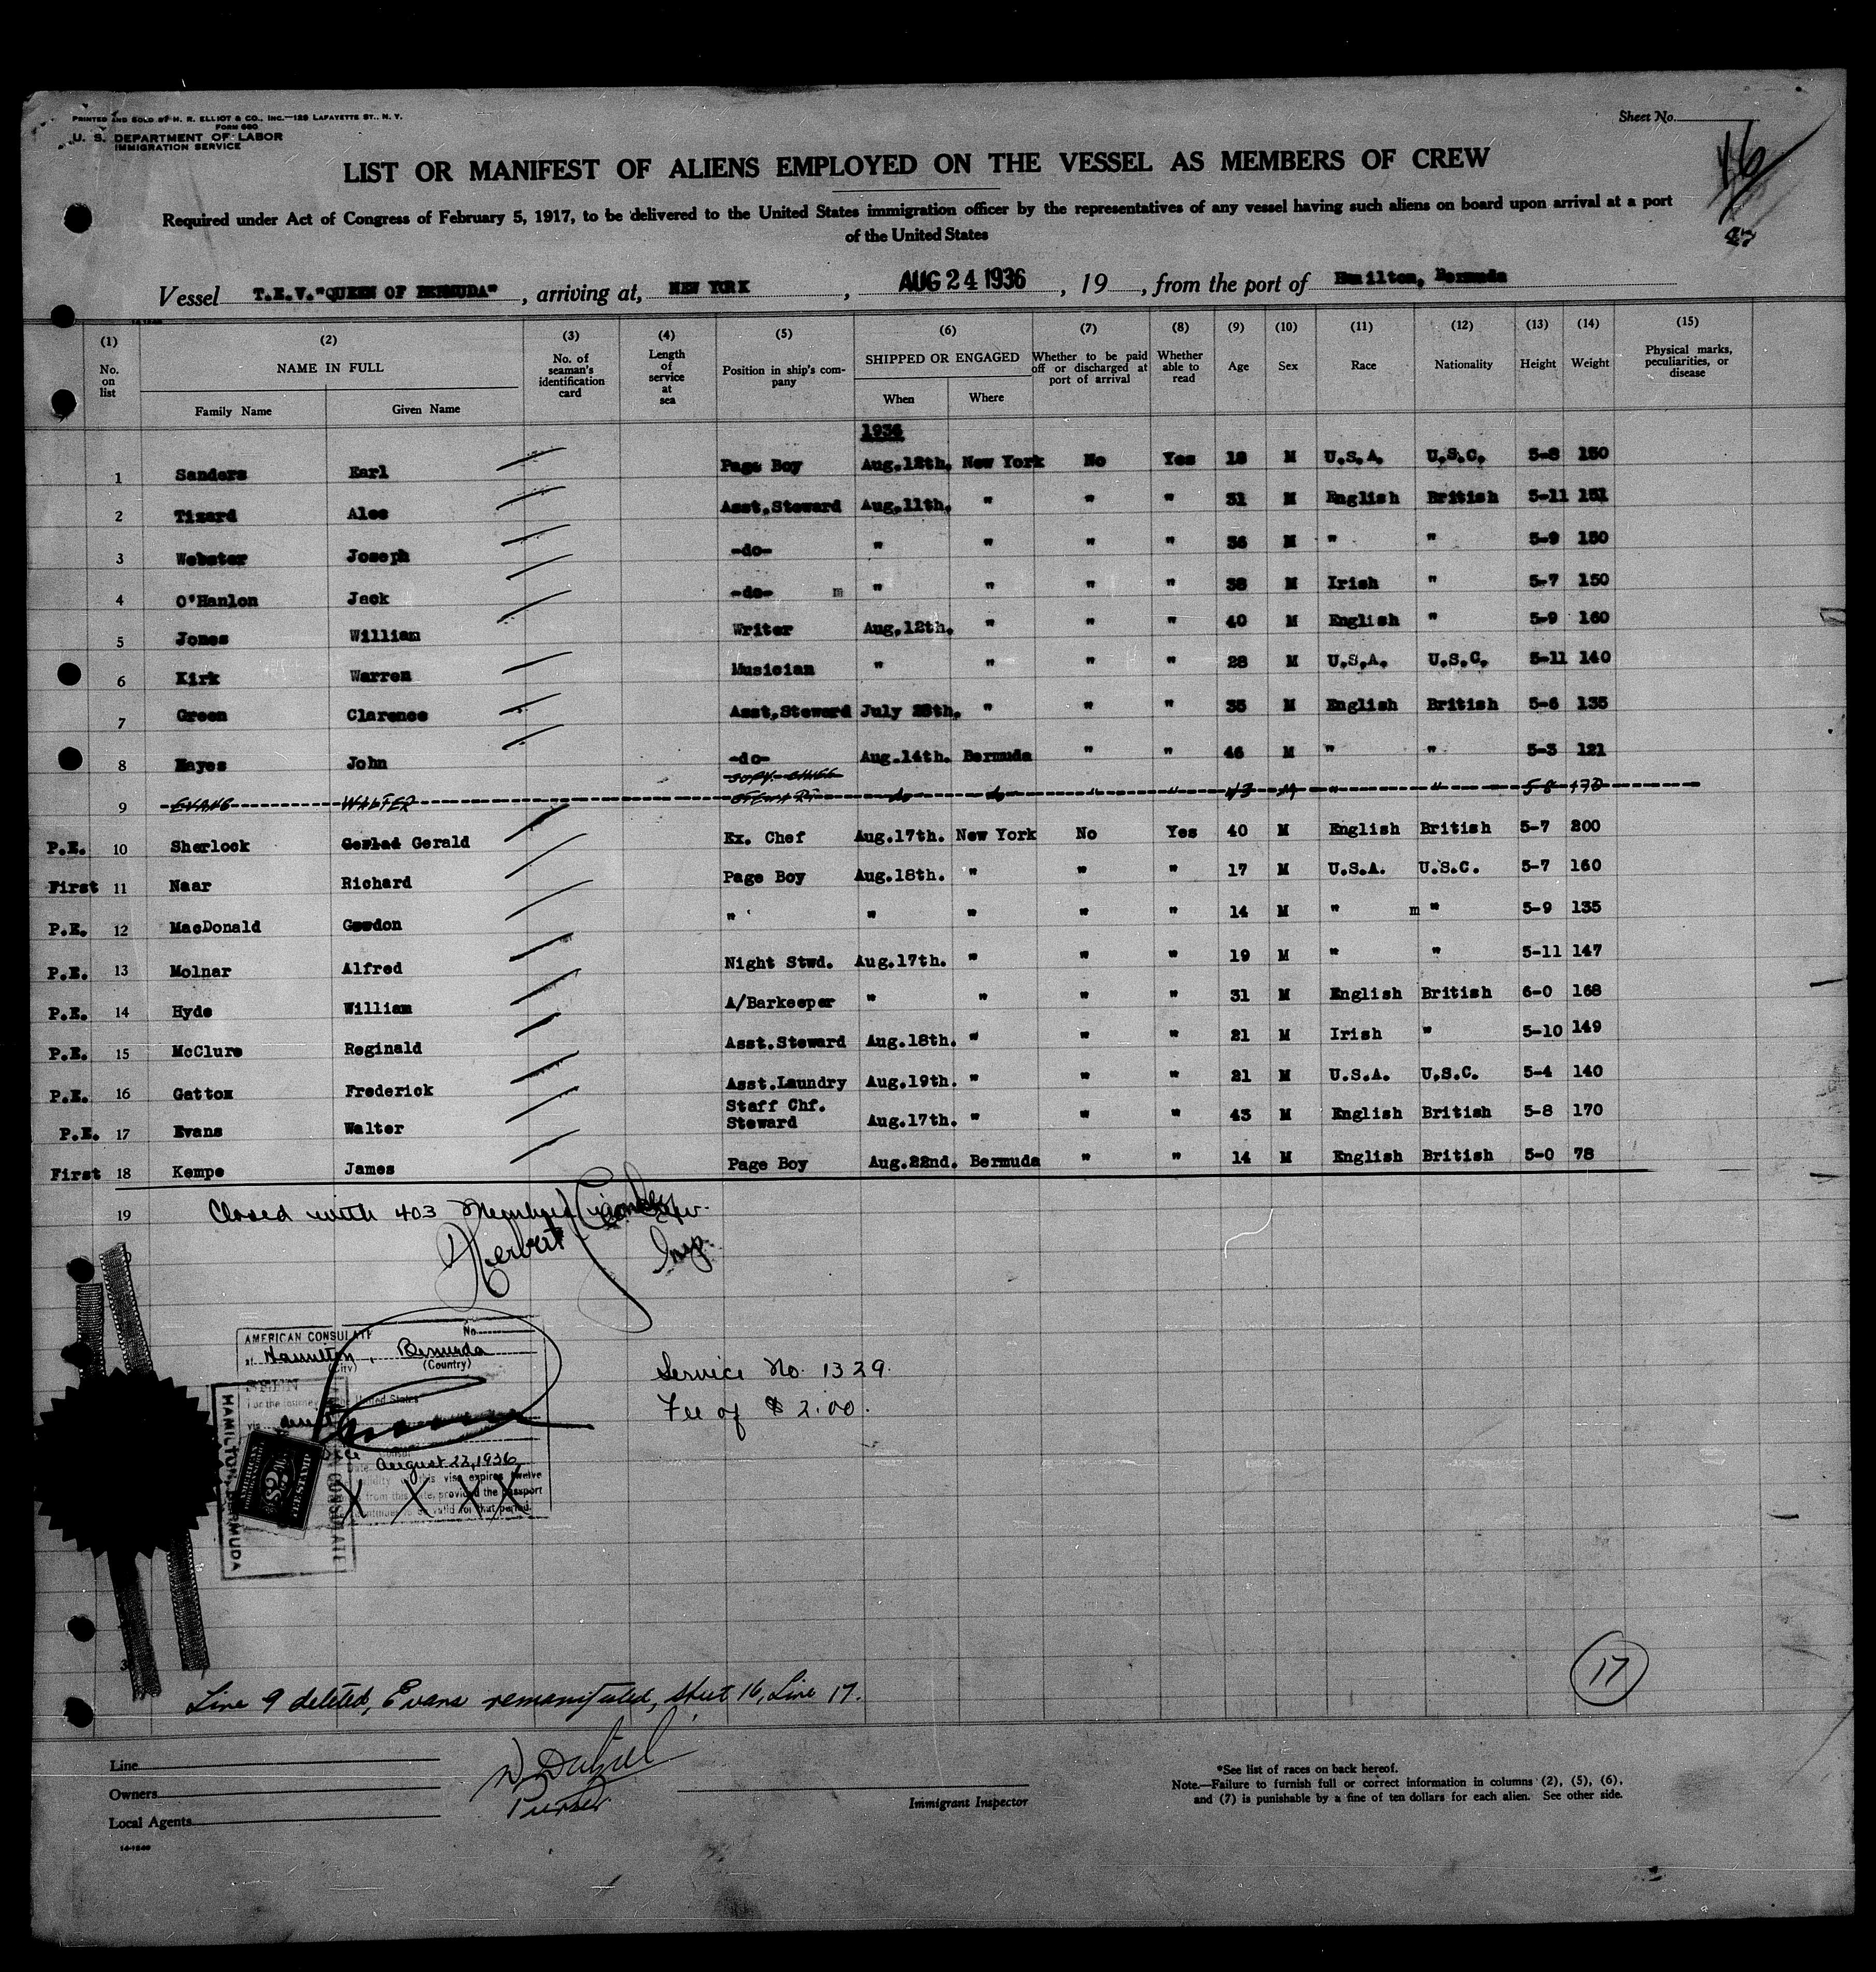 PRINTED AND SOLD BY H. R. ELLIOT & CO., INC.—129 LAFAYETTE ST., N. Y.
FORM 680
U. S. DEPARTMENT OF LABOR
IMMIGRATION SERVICE
Sheet No.
16
LIST OR MANIFEST OF ALIENS EMPLOYED ON THE VESSEL AS MEMBERS OF CREW
Required under Act of Congress of February 5, 1917, to be delivered to the United States immigration officer by the representatives of any vessel having such aliens on board upon arrival at a port
of the United States
Vessel T.E.V."QUEEN OF BERMUDA", arriving at, NEW YORK, AUG 24 1936, 19 , from the port of Hamilton, Bermuda
(1) (2) (3) (4) (5) (6) (7) (8) (9) (10) (11) (12) (13) (14) (15)
No. on list NAME IN FULL No. of seaman's identification card Length of service at sea Position in ship's company SHIPPED OR ENGAGED Whether to be paid off or discharged at port of arrival Whether able to read Age Sex Race Nationality Height Weight Physical marks, peculiarities, or disease
Family Name Given Name When Where
1936
1 Sanders Earl Page Boy Aug.12th. New York No Yes 18 M U.S.A. U.S.C. 5-8 150
2 Tizard Alec Asst.Steward Aug.11th. " " " 31 M English British 5-11 151
3 Webster Joseph -do- " " " " 36 M " " 5-9 150
4 O'Hanlon Jack -do- m " " " " 38 M Irish " 5-7 150
5 Jones William Writer Aug.12th. " " " 40 M English " 5-9 160
6 Kirk Warren Musician " " " " 28 M U.S.A. U.S.C. 5-11 140
7 Green Clarence Asst.Steward July 28th. " " " 35 M English British 5-6 135
8 Hayes John -do- Aug.14th. Bermuda " " 46 M " " 5-3 121
9 EVANS WALTER STEWARD do do " " 43 M " " 5-8 170
P.E. 10 Sherlock Gerald Ex. Chef Aug.17th. New York No Yes 40 M English British 5-7 200
First 11 Naar Richard Page Boy Aug.18th. " " " 17 M U.S.A. U.S.C. 5-7 160
P.E. 12 MacDonald Gordon " " " " " 14 M " m " 5-9 135
P.E. 13 Molnar Alfred Night Stwd. Aug.17th. " " " 19 M " " 5-11 147
P.E. 14 Hyde William A/Barkeeper " " " " 31 M English British 6-0 168
P.E. 15 McClure Reginald Asst.Steward Aug.18th. " " " 21 M Irish " 5-10 149
P.E. 16 Gattox Frederick Asst.Laundry Aug.19th. " " " 21 M U.S.A. U.S.C. 5-4 140
P.E. 17 Evans Walter Staff Chf. Steward Aug.17th. " " " 43 M English British 5-8 170
First 18 Kempe James Page Boy Aug.22nd. Bermuda " " 14 M English British 5-0 78
19 Closed with 403 Members
Herbert
Insp.
AMERICAN CONSULATE No.
at Hamilton, Bermuda
(City) (Country)
SEEN
For the journey to the United States
Consul
August 22, 1936
validity of this visa expires twelve
from this date, provided the passport
continues to be valid for that period.
HAMILTON, BERMUDA
CONSULATE
Service No. 1329.
Fee of $ 2.00.
Line 9 deleted, Evans remanifested, sheet 16, Line 17.
17
Line
Owners
Local Agents
Purser
Immigrant Inspector
*See list of races on back hereof.
Note.—Failure to furnish full or correct information in columns (2), (5), (6),
and (7) is punishable by a fine of ten dollars for each alien. See other side.
14-1240